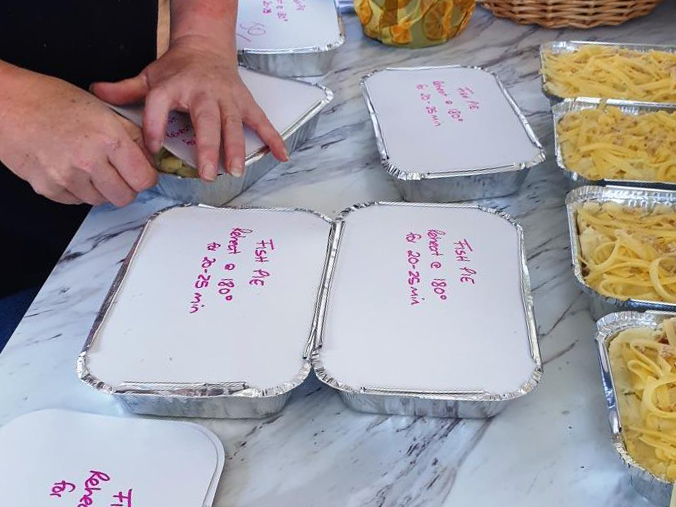 FISH PIE
Reheat @ 180°
for 20-25 min
FISH PIE
Reheat @ 180°
for 20-25 min
FISH PIE
Reheat @ 180°
for 20-25 min
Reheat
for